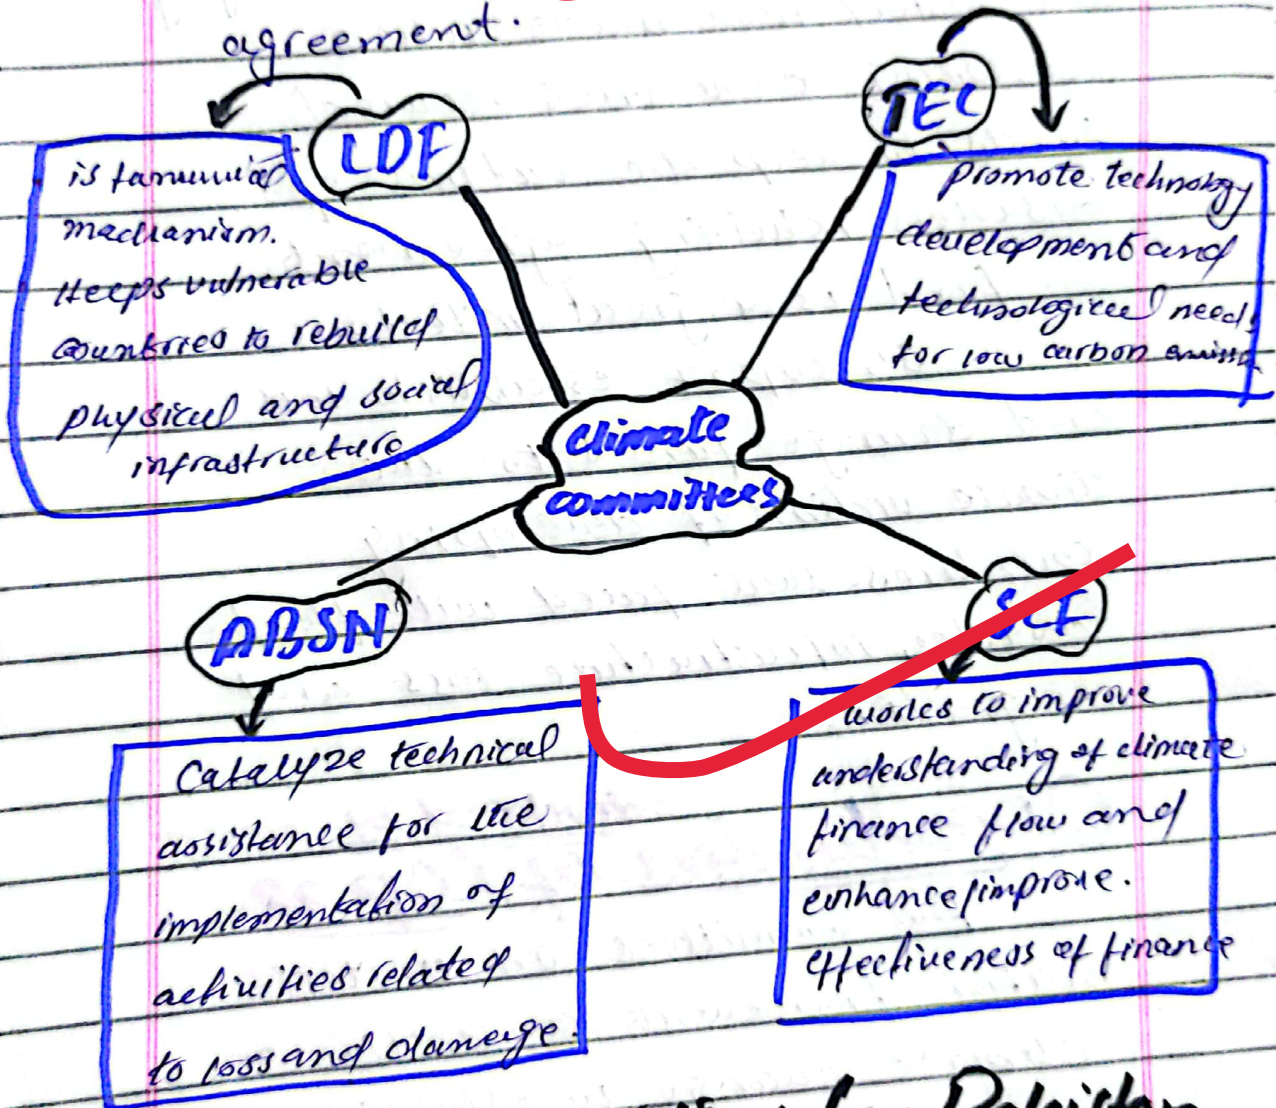 agreement.
LDF
is
mechanism.
Heeps vulnerable
countries to rebuild
physical and social
infrastructure
TEC
Promote technology
development and
technological needs
for low carbon
climate
committees
ABSN
Catalyze technical
assistance for the
implementation of
activities related
to loss and damage.
SCF
works to improve
understanding of climate
finance flow and
enhance/improve.
effectiveness of finance
Pakistan